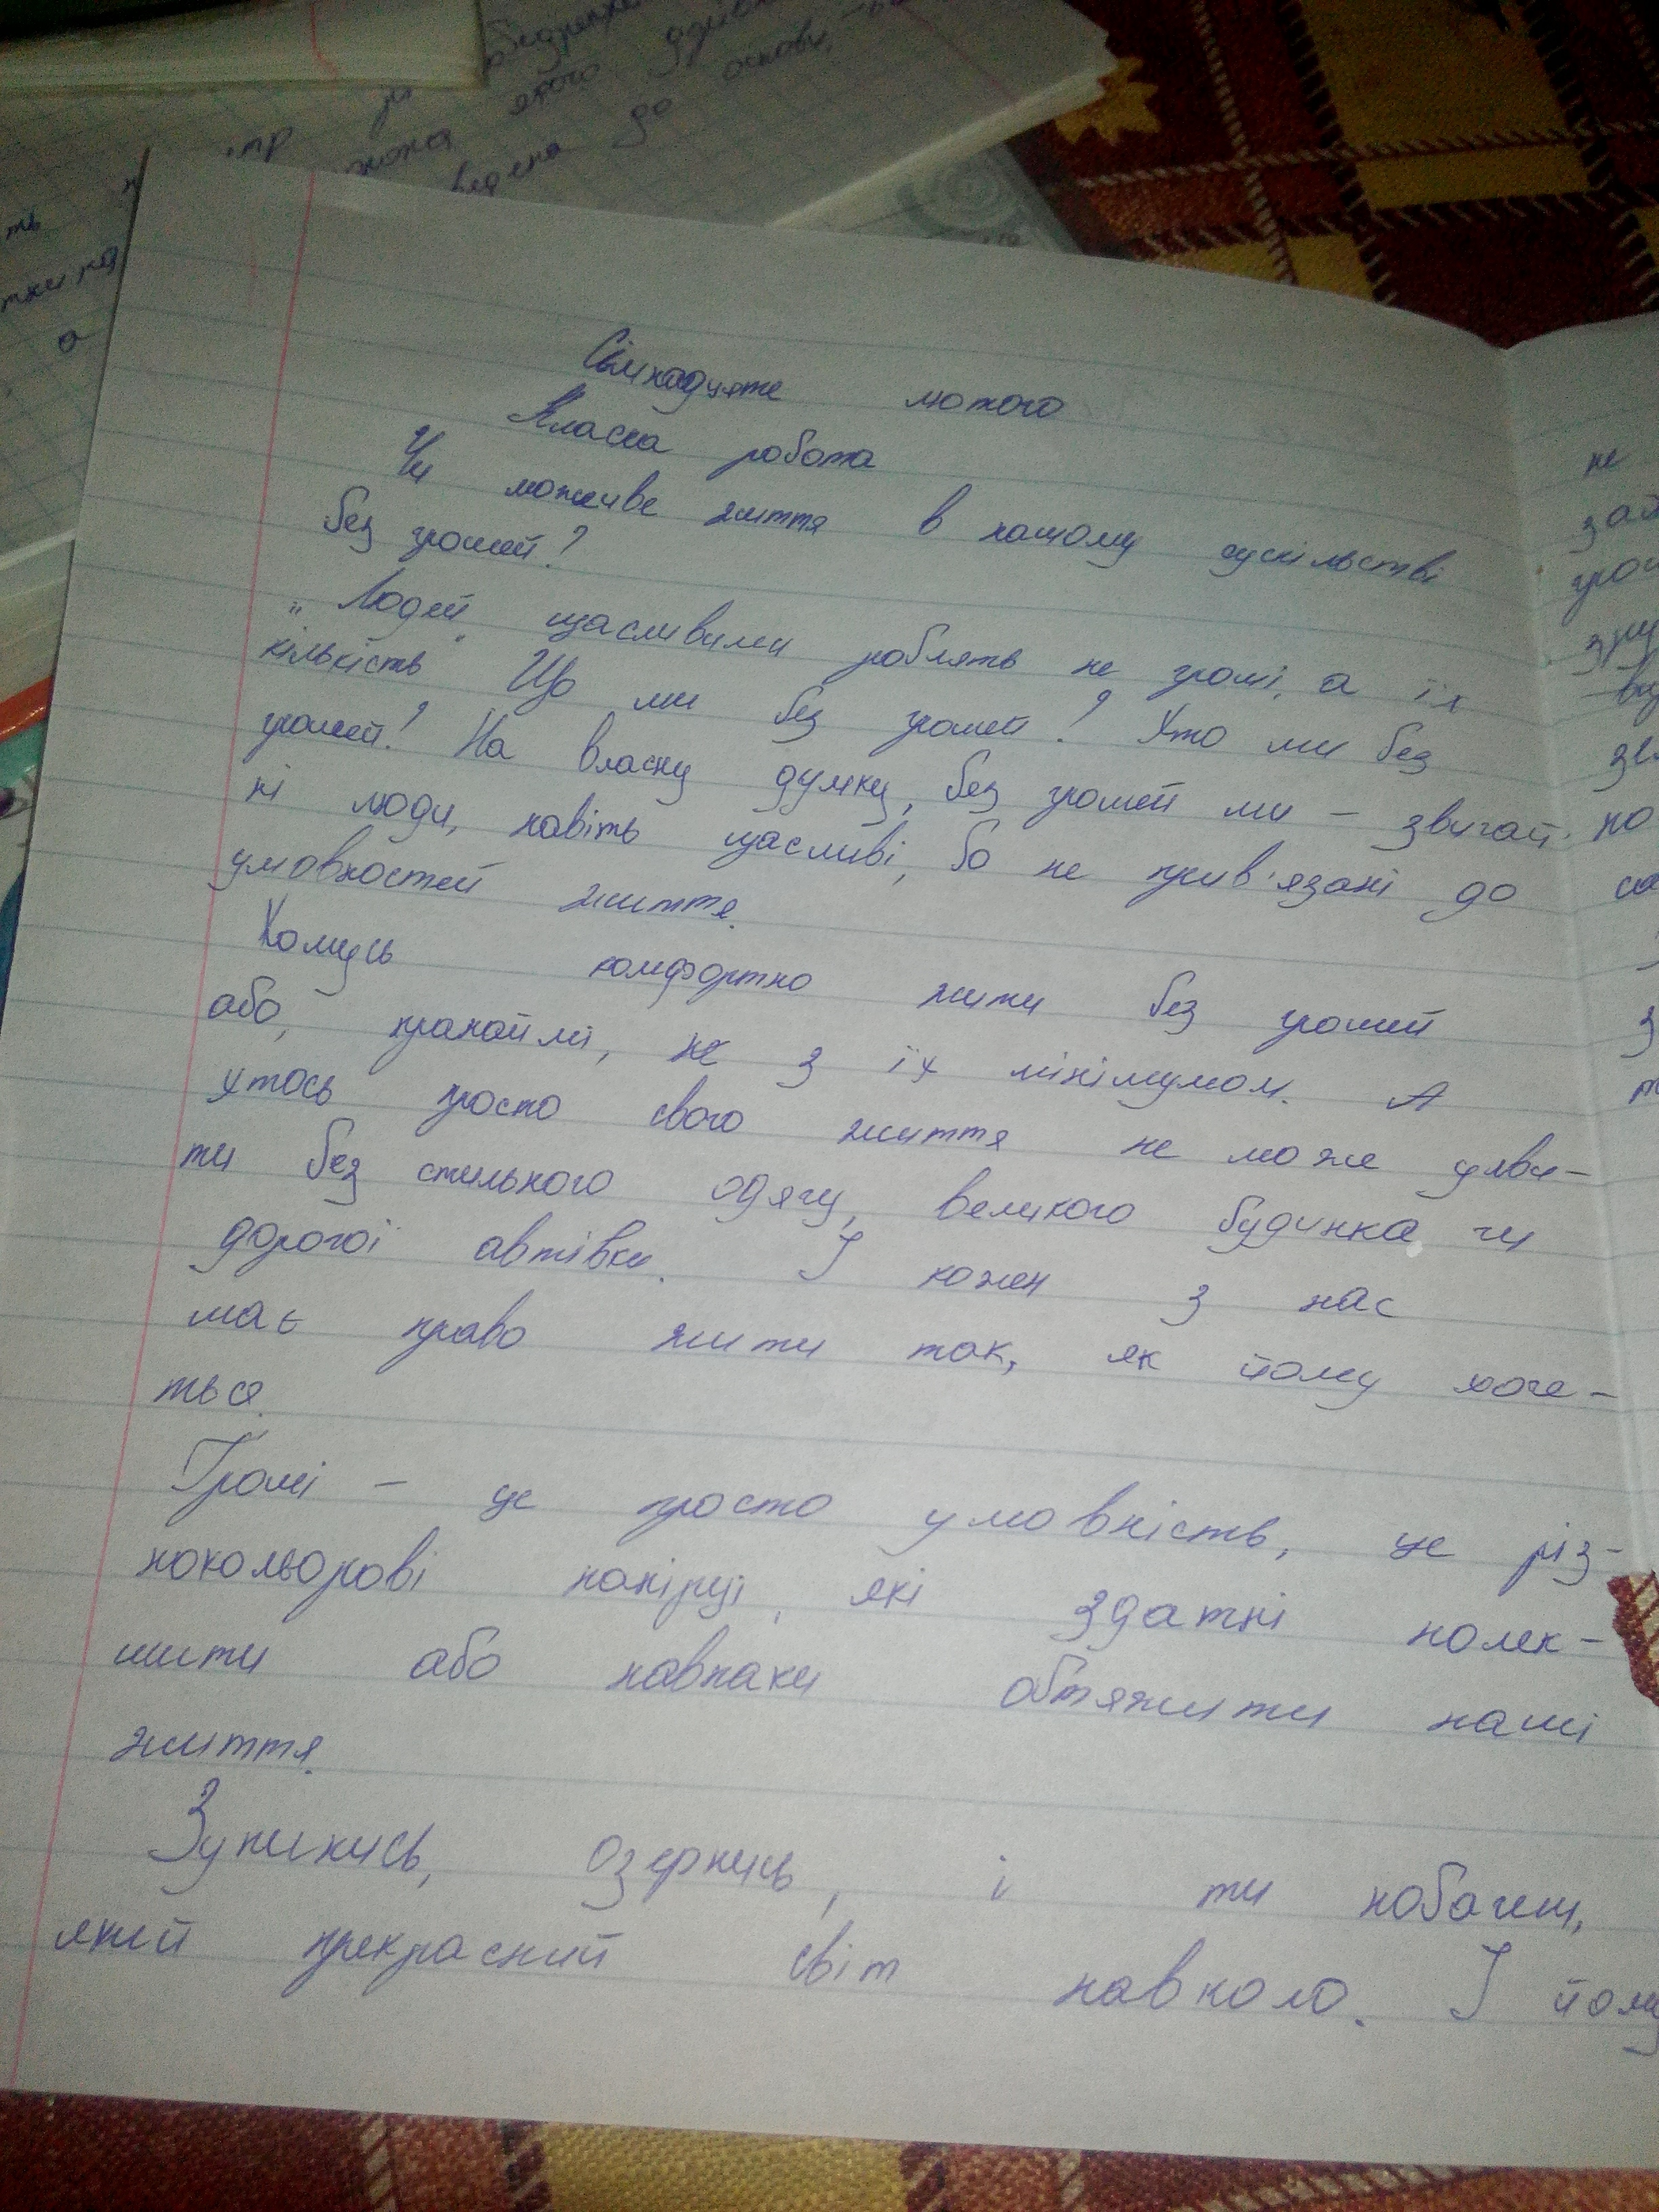 Сімнадцяте лютого
Класна робота
Чи можливе життя в нашому суспільстві
без грошей?
„Людей щасливими роблять не гроші, а їх
кількість" Що ми без грошей? Хто ми без
грошей? На власну думку, без грошей ми – звичай-
ні люди, навіть щасливі, бо не прив'язані до
умовностей життя.
Комусь комфортно жити без грошей
або, принаймі, з їх мінімумом. А
хтось просто свого життя не може уяви-
ти без стильного одягу, великого будинка чи
дорогої автівки. І кожен з нас
має право жити так, як йому хоче-
ться.
Гроші – це просто умовність, це різ-
нокольорові папірці, які здатні полек-
шити або навпаки обтяжити наші
життя.
Зупинись, озернись, і ти побачиш,
який прекрасний світ навколо. І йому
не
зай
грош
по
з
якого
до основи,
ведена